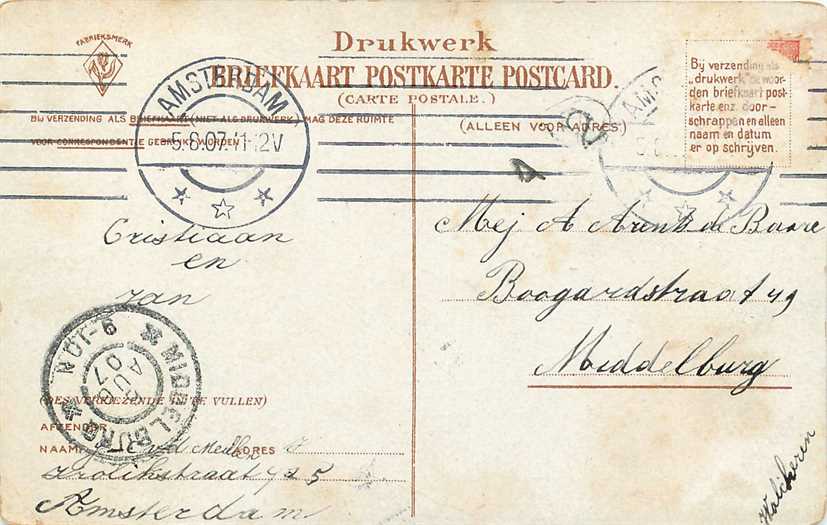 FABRIEKSMERK
Drukwerk
BRIEFKAART POSTKARTE POSTCARD.
(CARTE POSTALE.)
BIJ VERZENDING ALS BRIEFKAART (NIET ALS DRUKWERK) MAG DEZE RUIMTE
VOOR CORRESPONDENTIE GEBRUIKT WORDEN
(ALLEEN VOOR ADRES.)
Bij verzending als
"drukwerk" de woor-
den briefkaart post-
karte enz. door-
schrappen en alleen
naam en datum
er op schrijven.
AMSTERDAM
5.8.07. 11-12V
AMS
Cristiaan
en
Jan
Mej A Arents de Baare
Boogardstraat 49
Middelburg
MIDDELBURG
9-10N
AUG
07
(DES VERKIEZENDE IN TE VULLEN)
AFZENDER
NAAM
ADRES
v d Mellen
Zrolikstraat 425
Amsterdam
Walcheren